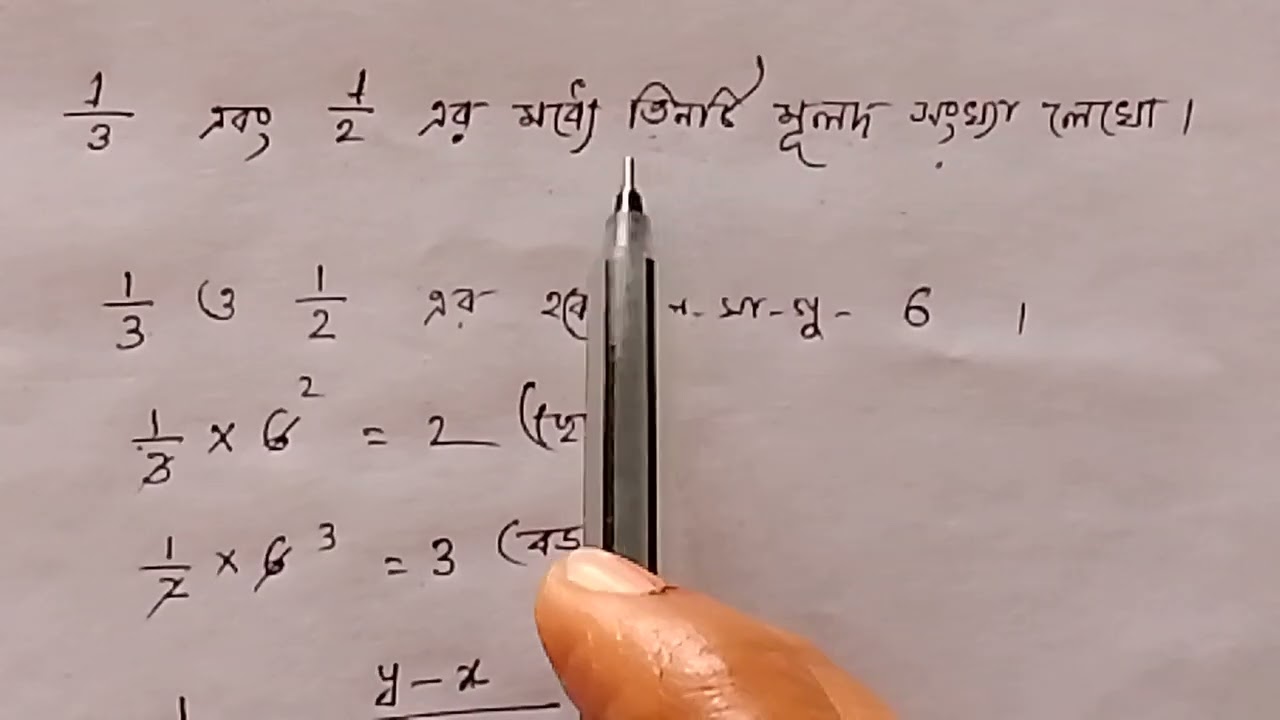 1/3 এবং 1/2 এর মধ্যে তিনটি মূলদ সংখ্যা লেখো।
1/3 ও 1/2 এর হরে সা-গু- 6 ।
1/3 × 6 2 = 2 (
1/2 × 6 3 = 3 (বড
y - x